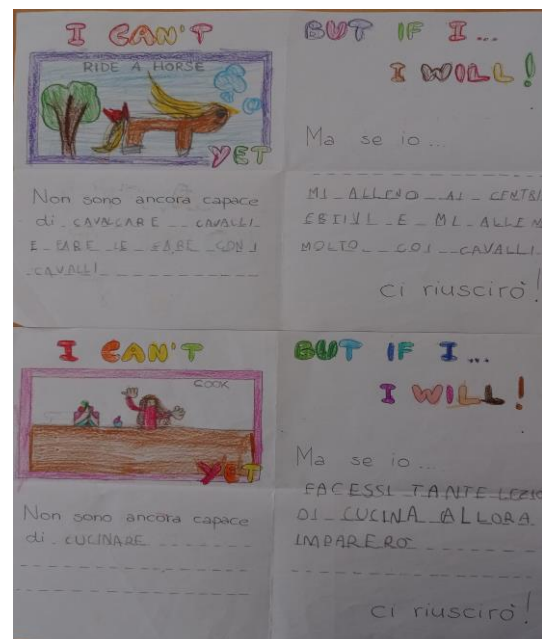 I CAN'T
RIDE A HORSE
YET
Non sono ancora capace
di CAVALCARE CAVALLI
E FARE LE GARE CON I
CAVALLI
BUT IF I...
I WILL!
Ma se io...
MI ALLENO AI CENTRI
ESTIVI E MI ALLEN
MOLTO COI CAVALLI
ci riuscirò!
I CAN'T
COOK
YET
Non sono ancora capace
di CUCINARE
BUT IF I...
I WILL!
Ma se io...
FACESSI TANTE LEZIO
DI CUCINA ALLORA
IMPARERÒ
ci riuscirò!